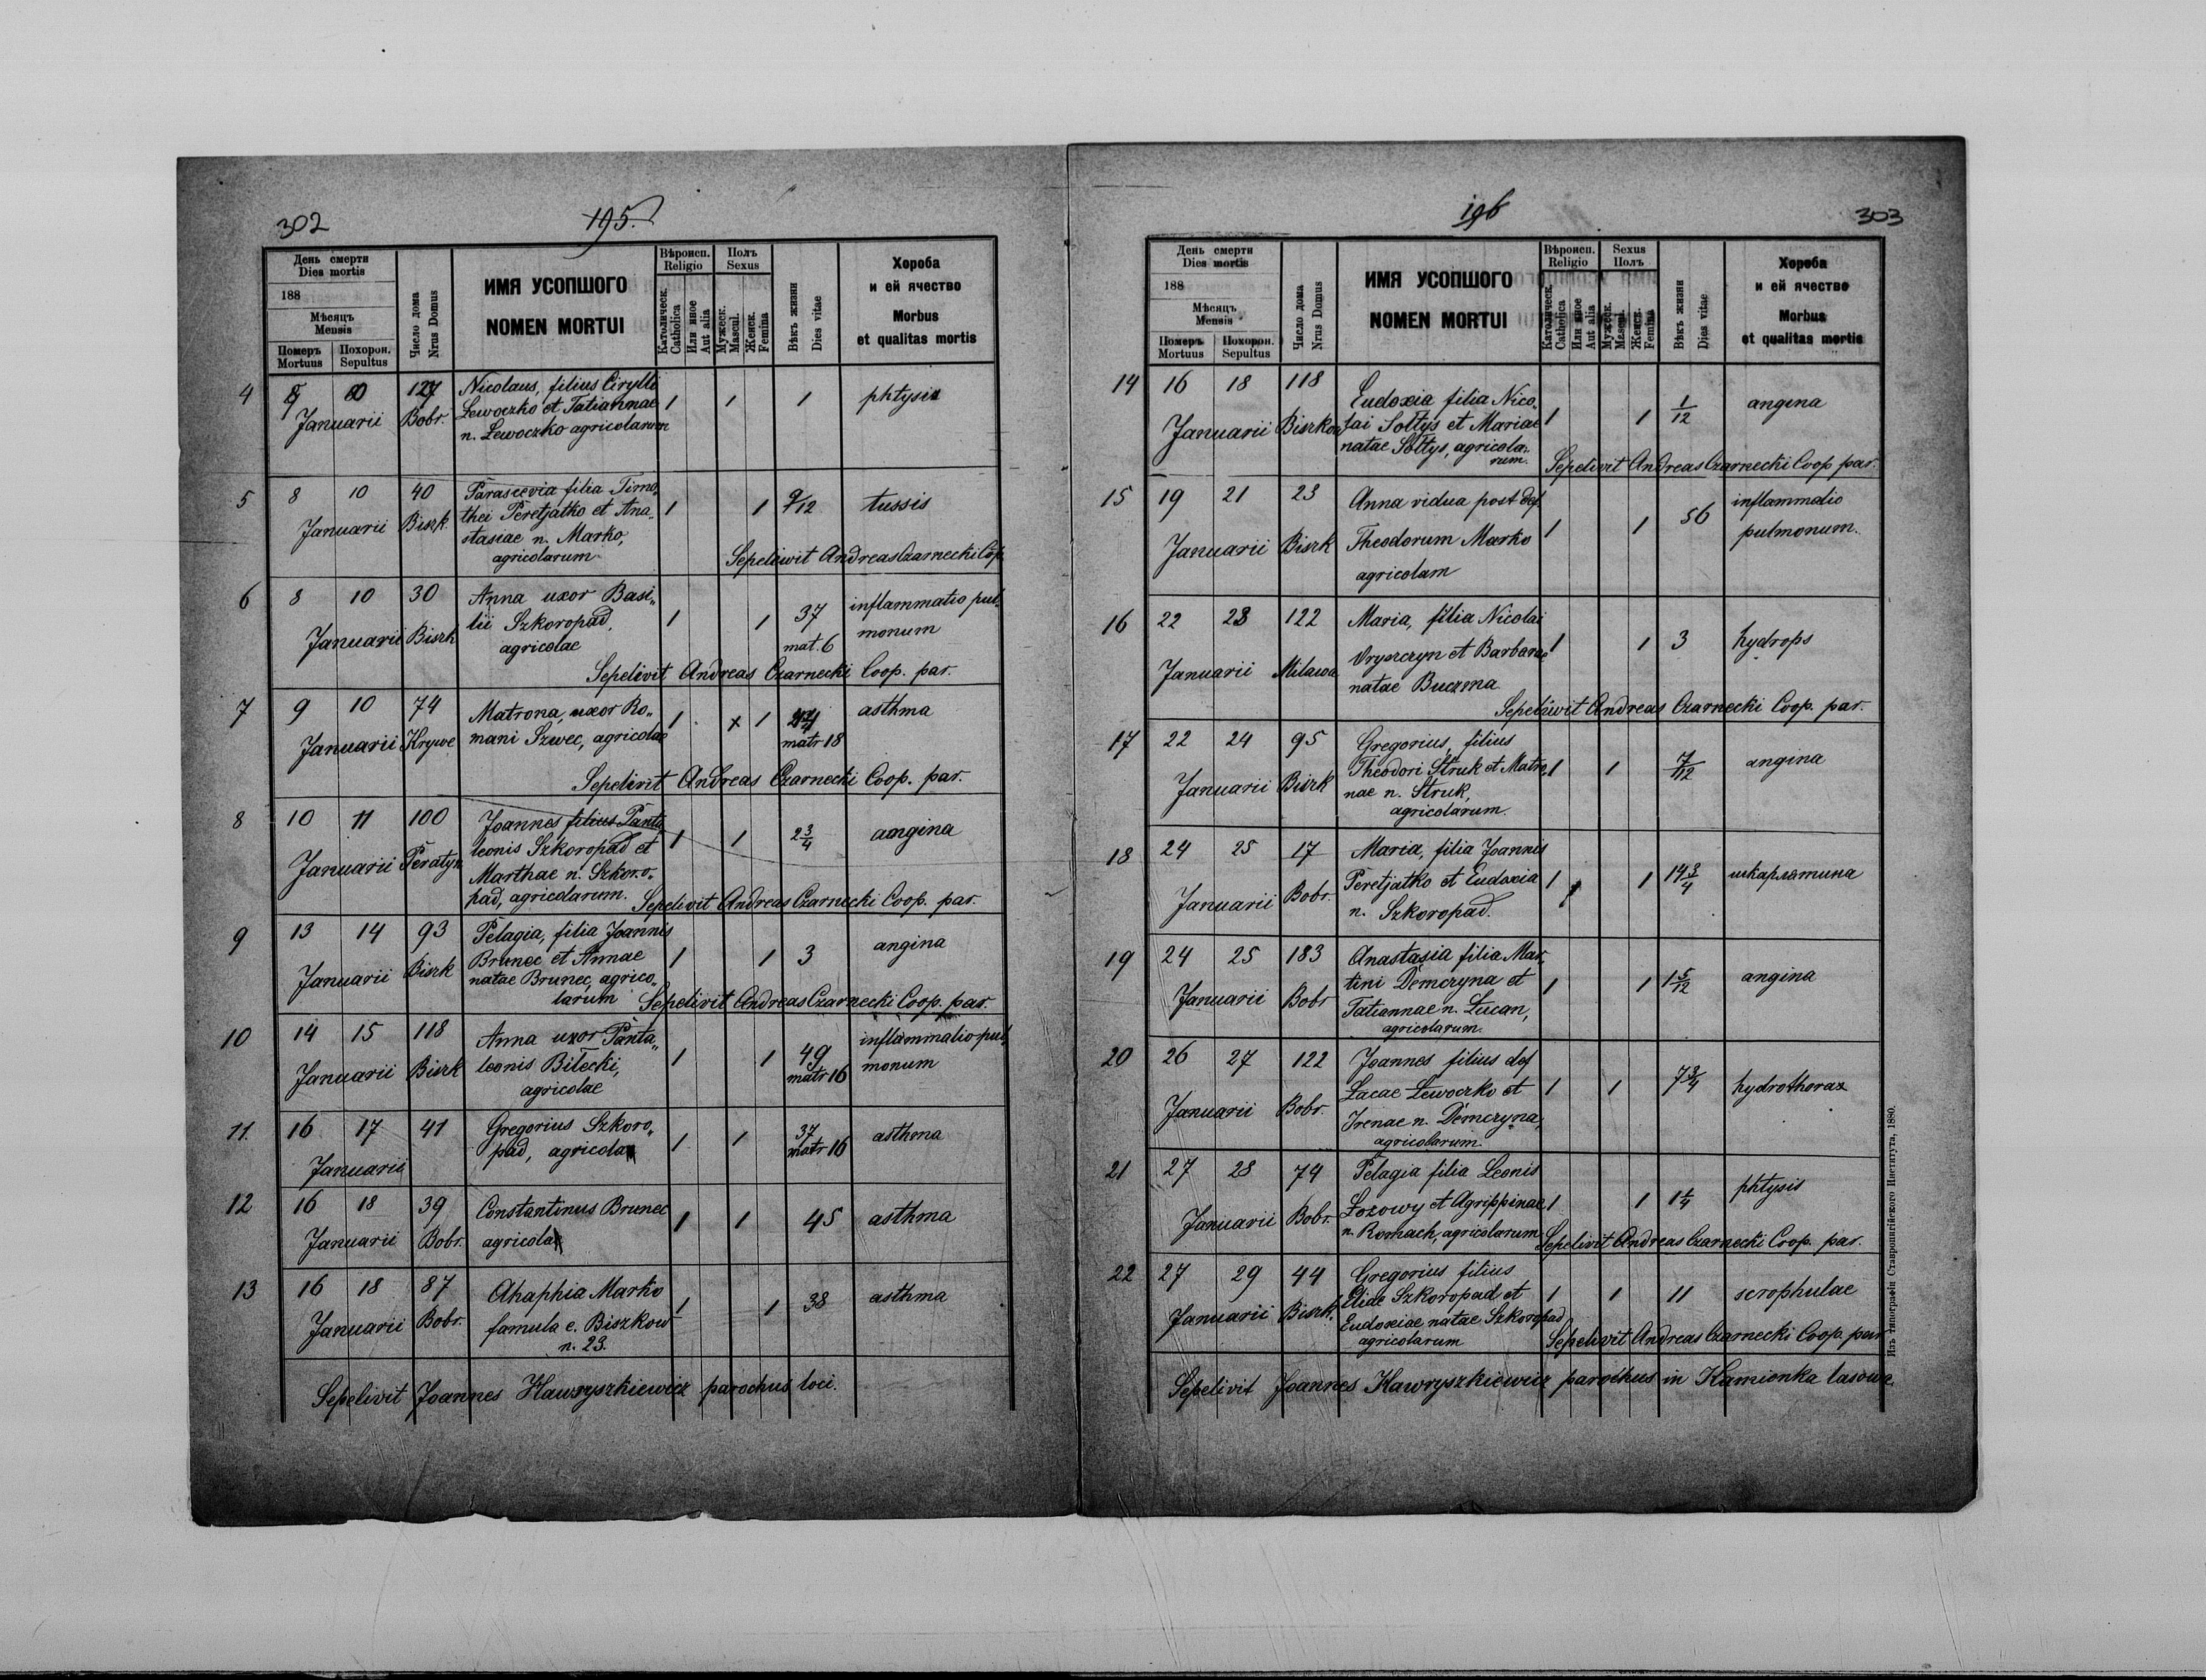 302
195.
День смерти
Dies mortis
188
Мѣсяцъ
Mensis
Померъ
Mortuus
Похорон.
Sepultus
Число дома
Nrus Domus
ИМЯ УСОПШОГО
NOMEN MORTUI
Вѣроисп.
Religio
Католическ.
Catholica
Или иное
Aut alia
Полъ
Sexus
Мужеск.
Mascul.
Женск.
Femina
Вѣкъ жизни
Dies vitae
Хороба
и ей ячество
Morbus
et qualitas mortis
4 127 Nicolaus, filius Cirylli
Januarii Bobr. Lewoczko et Tatiannae 1 1 1 phtysis
n. Lewoczko agricolarum
5 8 10 40 Parascevia filia Timo„
Januarii Biszk thei Peretjatko et Ana„ 1 1 9/12 tussis
stasiae n. Marko,
agricolarum
Sepelivit Andreas Czarnecki Cop.
6 8 10 30 Anna uxor Basi„ 37 inflammatio pul„
Januarii Biszk lii Szkoropad, 1 1 mat. 6 monum
agricolae
Sepelivit Andreas Czarnecki Coop. par.
7 9 10 74 Matrona, uxor Ro„ asthma
Januarii Krywe mani Szwec, agricolae 1 x 1 matr 18
Sepelivit Andreas Czarnecki Coop. par.
8 10 11 100 Joannes filius Panta
Januarii Peratyn leonis Szkoropad et 1 1 2 3/4 angina
Marthae n. Szkoro„
pad, agricolarum.
Sepelivit Andreas Czarnecki Coop. par.
9 13 14 93 Pelagia, filia Joannis
Januarii Biszk Brunec et Annae 1 1 3 angina
natae Brunec, agrico„
larum
Sepelivit Andreas Czarnecki Coop. par.
10 14 15 118 Anna uxor Panta„ 49 inflammatio pul„
Januarii Biszk leonis Bilecki, 1 1 matr 16 monum
agricolae
11. 16 17 41 Gregorius Szkoro„ 37 asthma
Januarii pad, agricola 1 1 matr 16
12 16 18 39 Constantinus Brunec
Januarii Bobr. agricola 1 1 45 asthma
13 16 18 87 Ahaphia Marko
Januarii Bobr. famula e. Biszkow 1 1 38 asthma
n. 23.
Sepelivit Joannes Hawryszkiewicz parochus loci.
196
303
День смерти
Dies mortis
188
Мѣсяцъ
Mensis
Померъ
Mortuus
Похорон.
Sepultus
Число дома
Nrus Domus
ИМЯ УСОПШОГО
NOMEN MORTUI
Вѣроисп.
Religio
Католическ.
Catholica
Или иное
Aut alia
Sexus
Полъ
Мужеск.
Mascul.
Женск.
Femina
Вѣкъ жизни
Dies vitae
Хороба
и ей ячество
Morbus
et qualitas mortis
14 16 18 118 Eudoxia filia Nico„
Januarii Biszkow lai Sołtys et Mariae 1 1 1/12 angina
natae Sołtys, agricola„
rum.
Sepelivit Andreas Czarnecki Coop par.
15 19 21 23 Anna vidua post def. inflammatio
Januarii Biszk Theodorum Marko 1 1 56 pulmonum.
agricolam
16 22 23 122 Maria, filia Nicolai
Januarii Milawa Oryszczyn et Barbarae 1 1 3 hydrops
natae Buczma
Sepelivit Andreas Czarnecki Coop. par.
17 22 24 95 Gregorius, filius
Januarii Biszk Theodori Struk et Matro„ 1 1 7/12 angina
nae n. Struk,
agricolarum.
18 24 25 17 Maria, filia Joannis
Januarii Bobr. Peretjatko et Eudoxia 1 1 14 3/4 шкарлятина
n. Szkoropad.
19 24 25 183 Anastasia filia Mar„
Januarii Bobr tini Demczyna et 1 1 1 5/12 angina
Tatiannae n. Łucan,
agricolarum.
20 26 27 122 Joannes filius def
Januarii Bobr. Lucae Lewoczko et 1 1 7 3/4 hydrothorax
Irenae n. Demczyna,
agricolarum.
21 27 28 74 Pelagia filia Leonis
Januarii Bobr. Łozowy et Agrippinae 1 1 1 1/4 phtysis
n. Romach, agricolarum
Sepelivit Andreas Czarnecki Coop. par.
22 27 29 44 Gregorius filius
Januarii Biszk. Eliae Szkoropad et 1 1 11 scrophulae
Eudoxiae natae Szkoropad
agricolarum
Sepelivit Andreas Czarnecki Coop. par
Sepelivit Joannes Hawryszkiewicz parochus in Kamionka lasowa.
Изъ типографіи Ставропигійского Института, 1880.